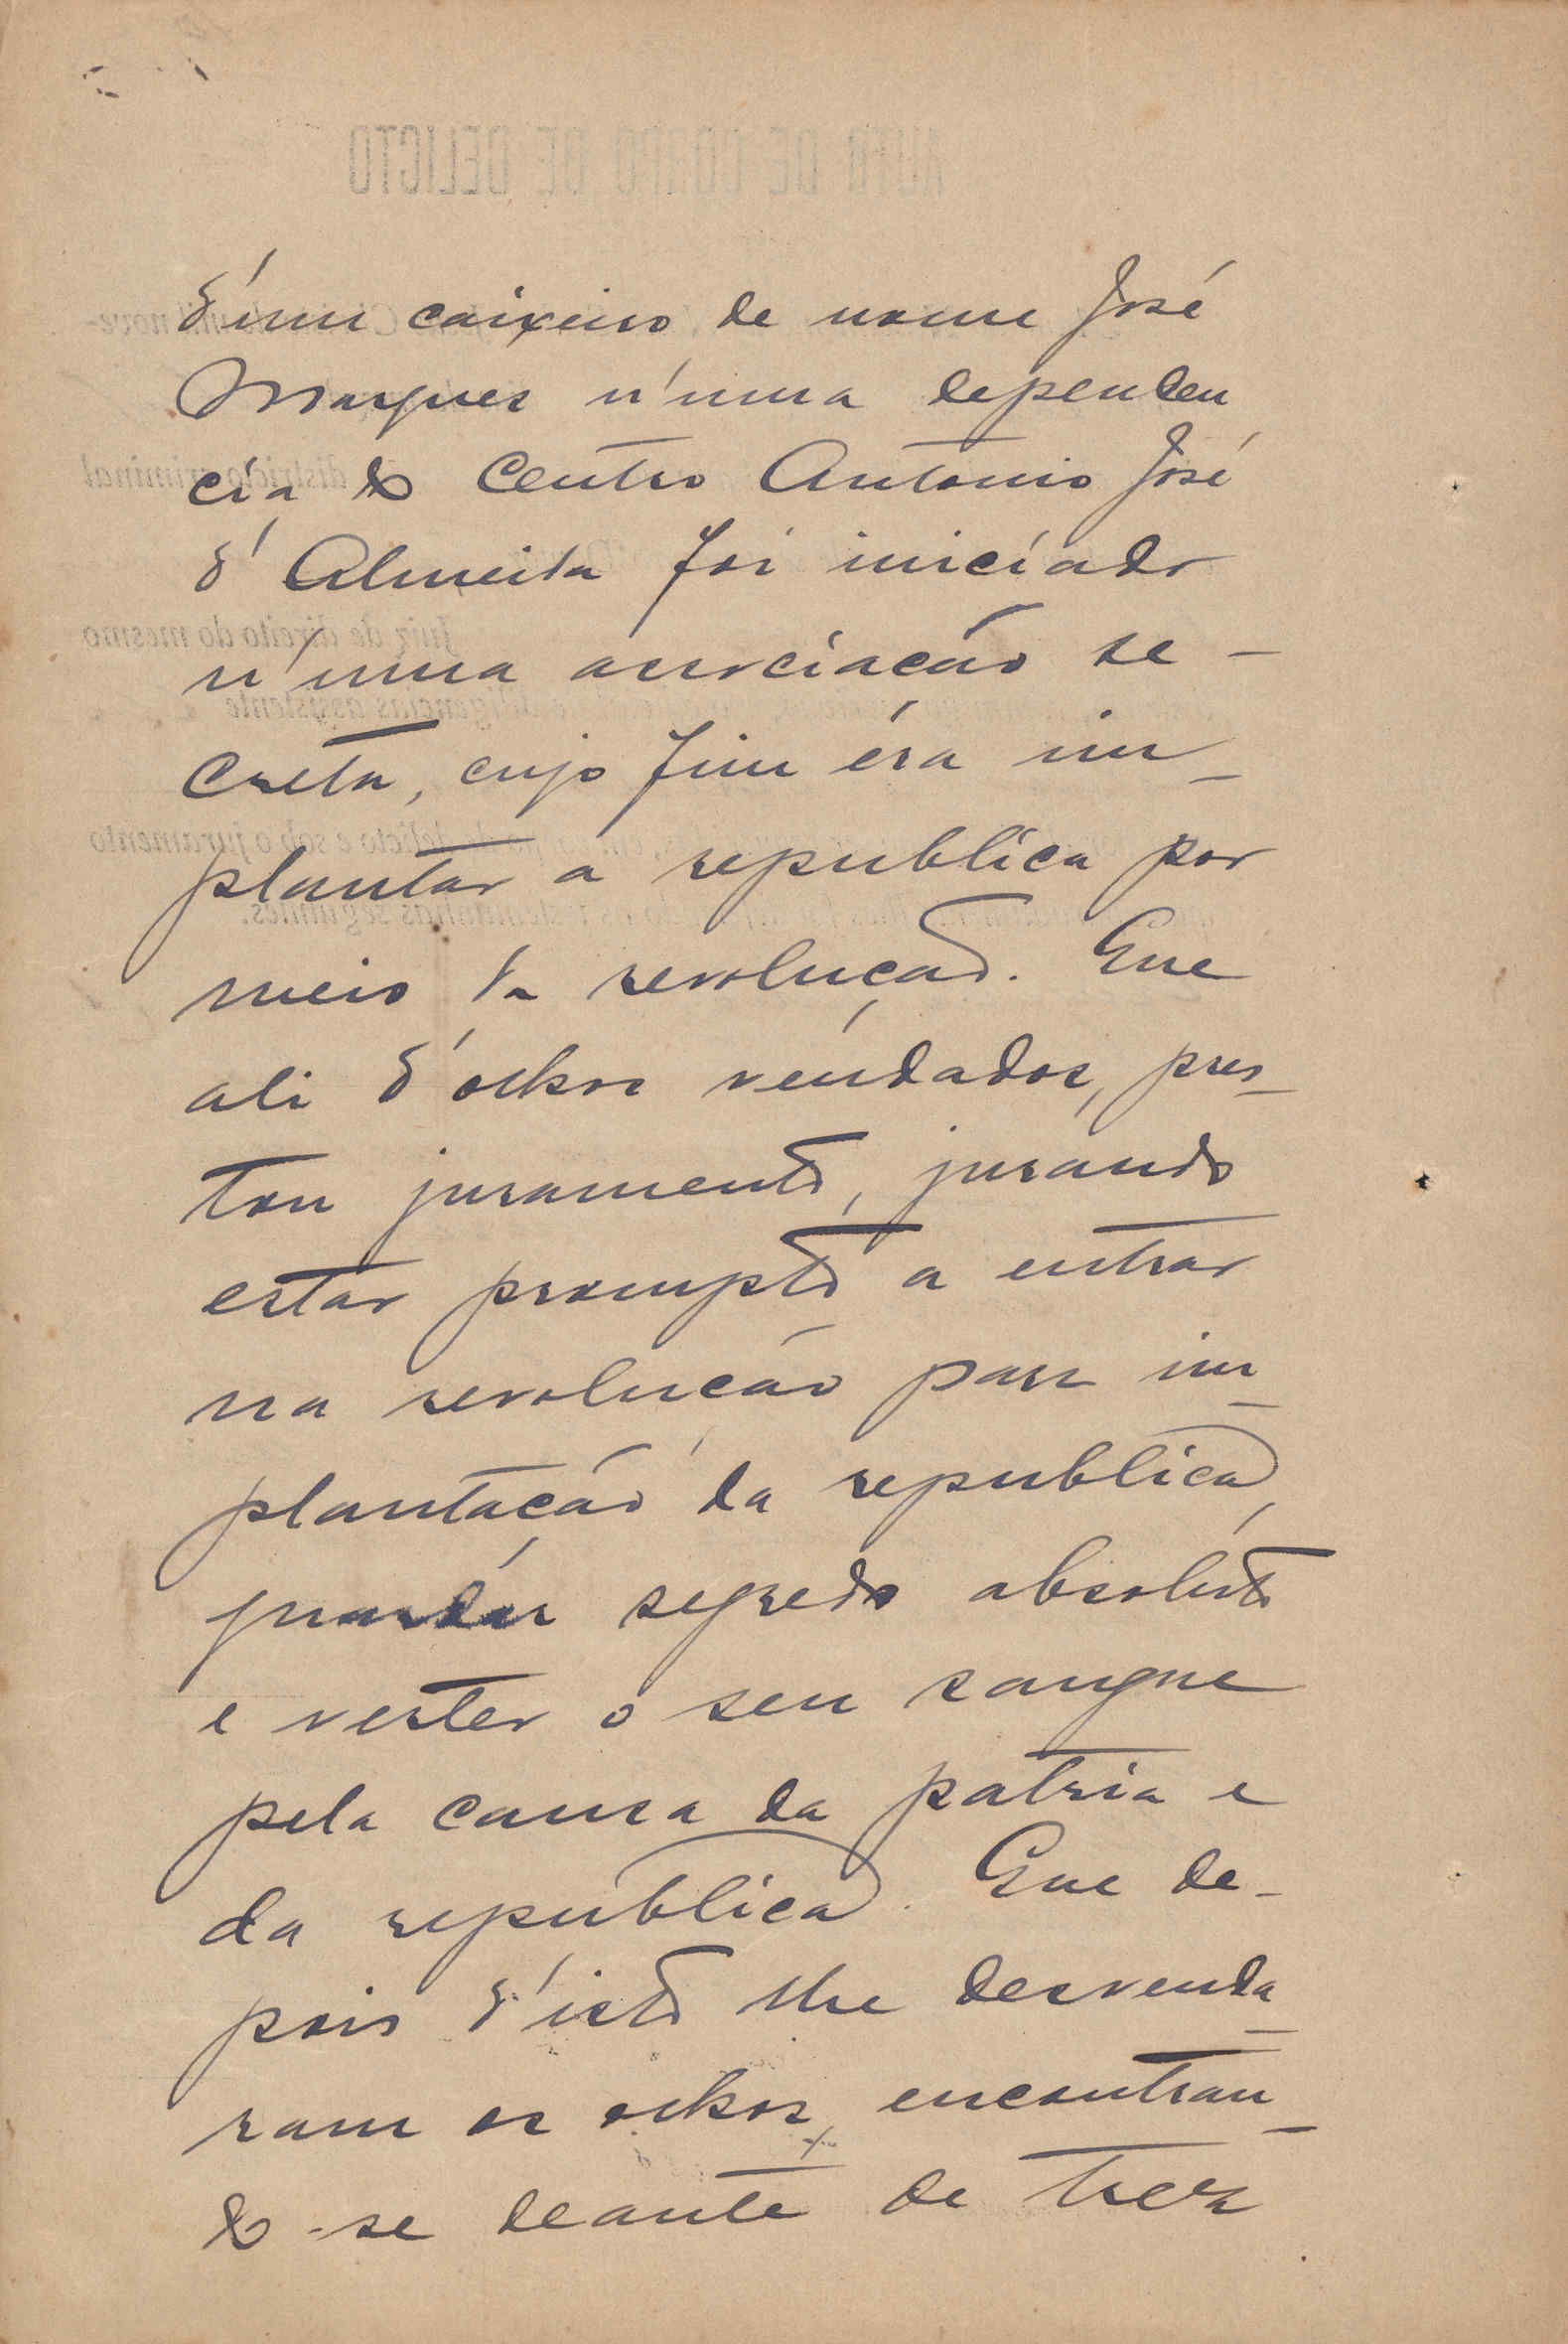 d'um caixeiro de nome José
Marques n'uma dependen
cia do Centro Antonio José
d'Almeida foi iniciado
n'uma associação se-
creta, cujo fim éra im-
plantar a republica por
meio da revolução. Que
ali d'olhos vendados, pres-
tou juramento, jurando
estar prompto a entrar
na revolução para im-
plantação da republica,
guardar segredo absoluto
e verter o seu sangue
pela causa da patria e
da republica. Que de-
pois d'isto lhe desvenda-
ram os olhos, encontran-
do-se deante de trez